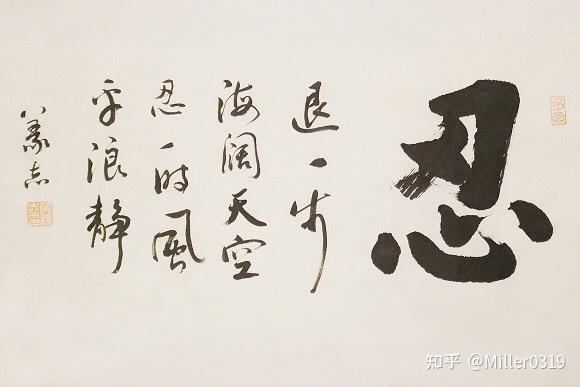 忍
退一步
海阔天空
忍一时風
平浪静
知乎 @Miller0319